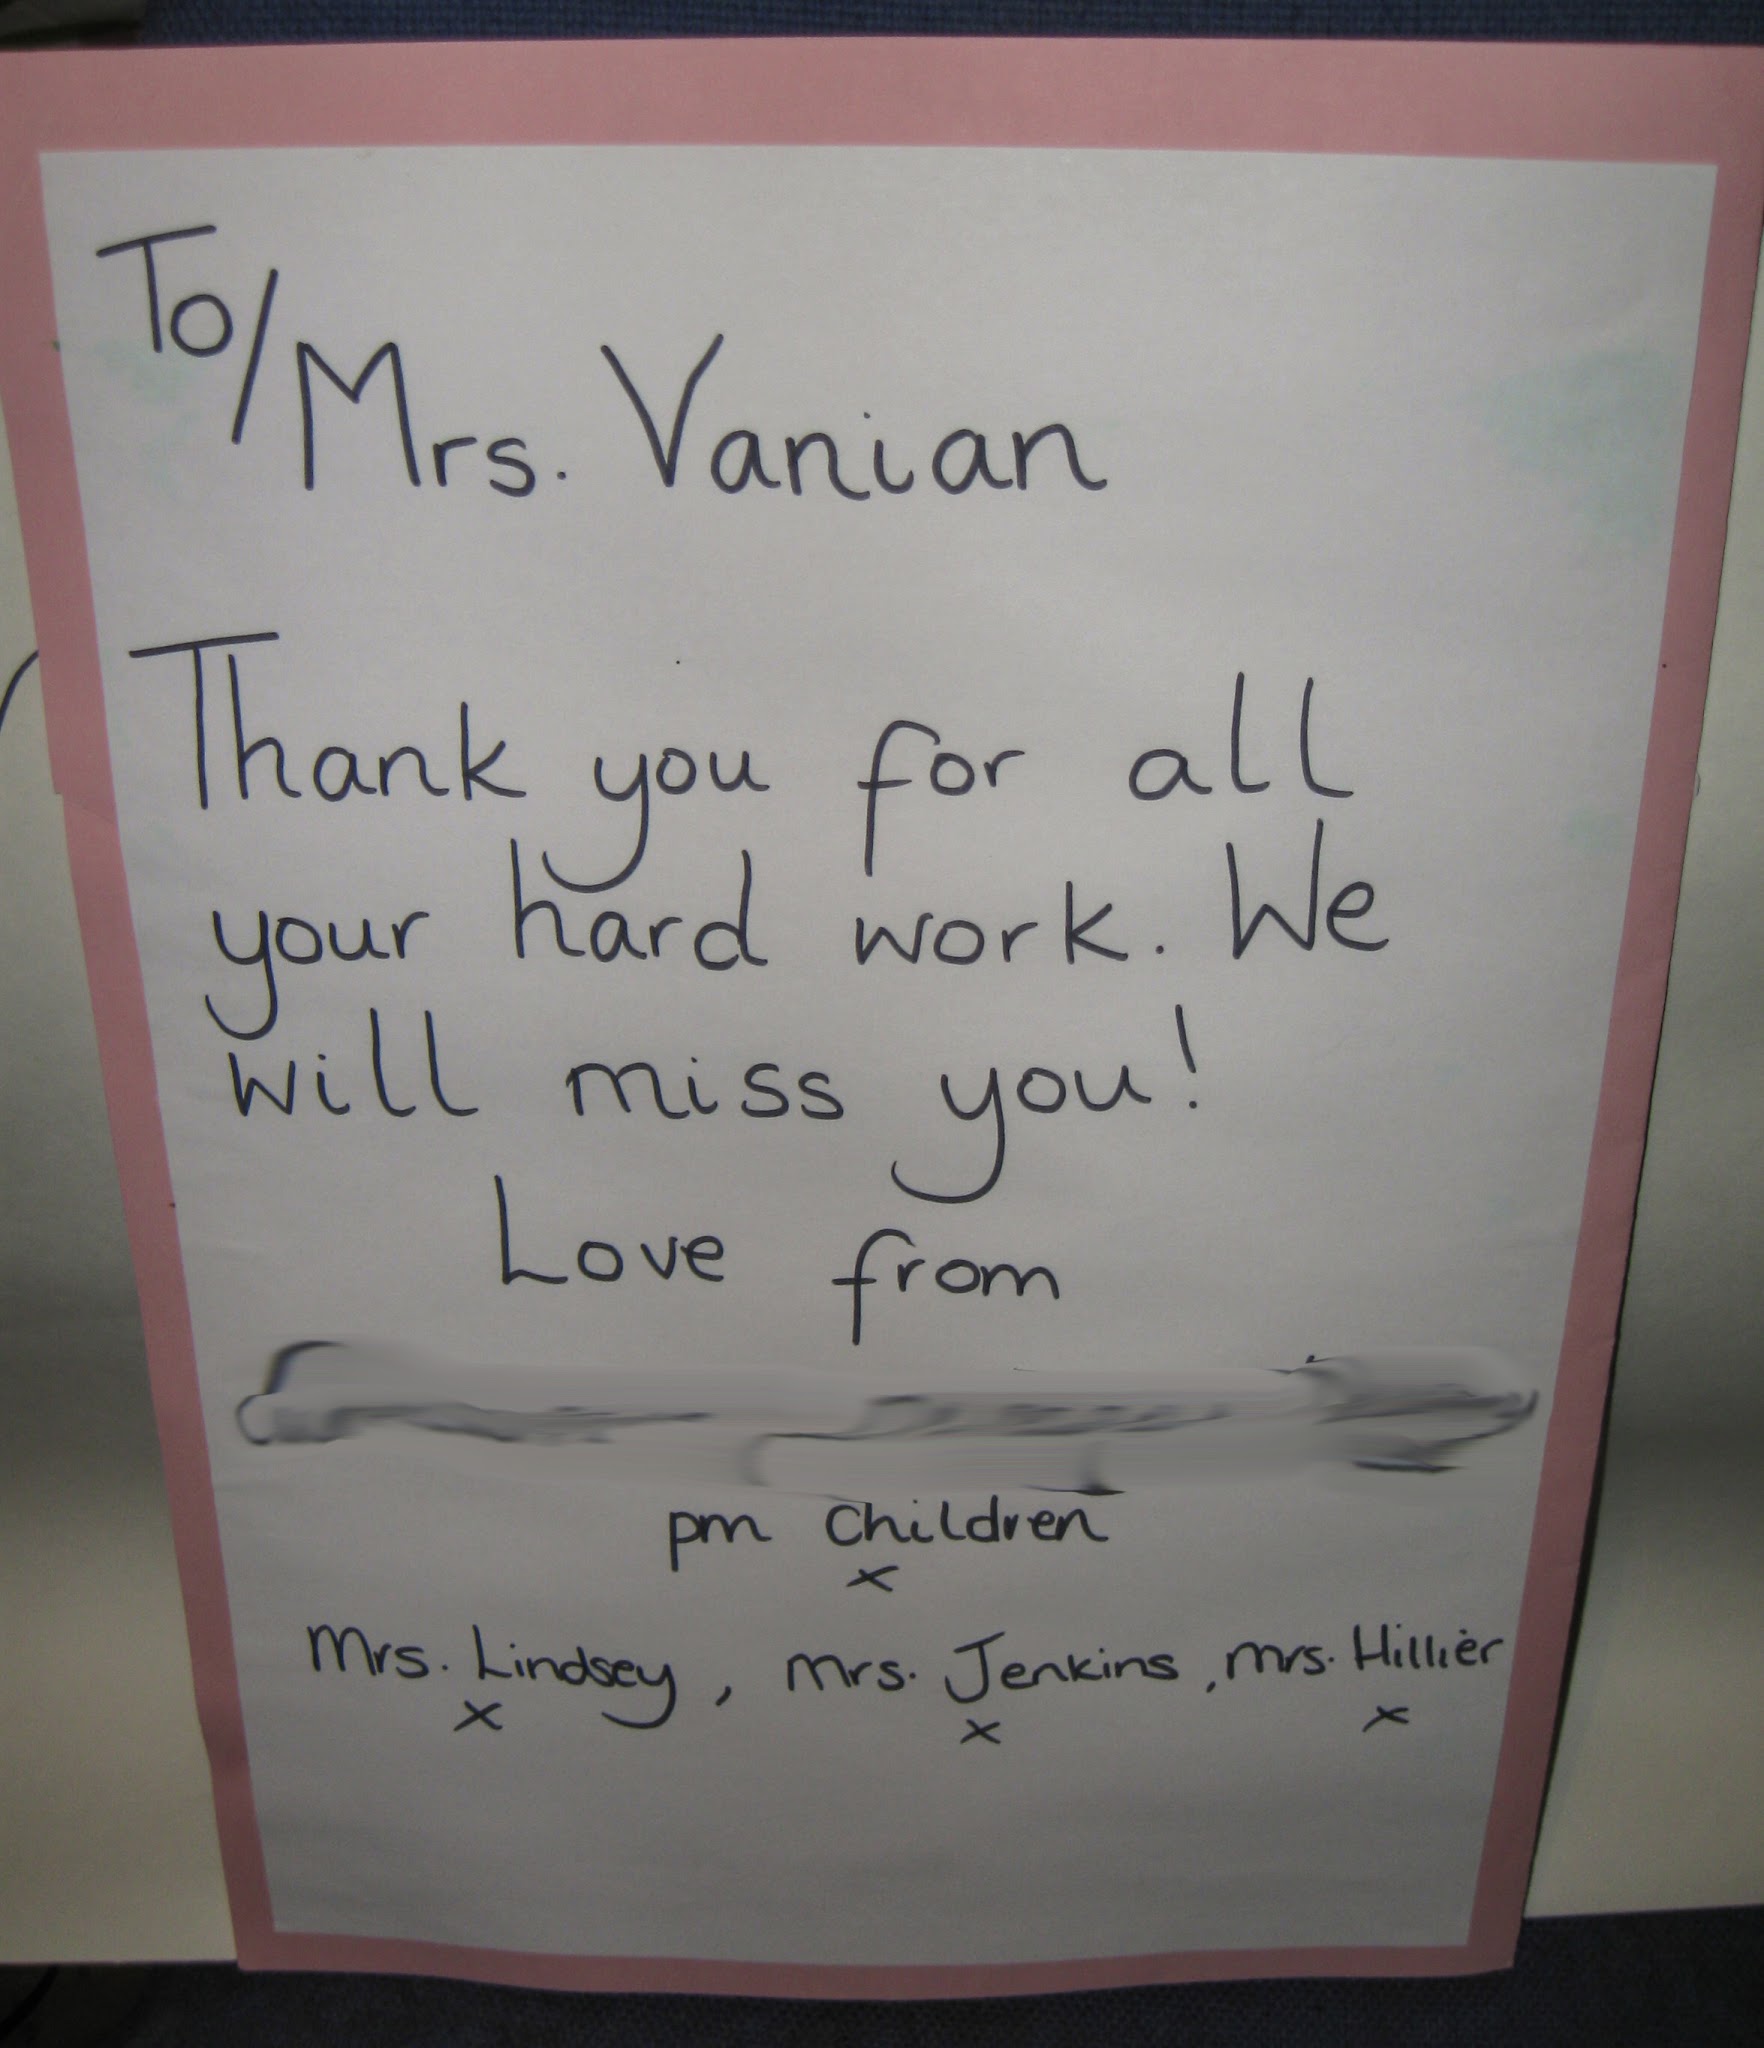 To/
Mrs. Vanian
Thank you for all
your hard work. We
will miss you!
Love from
pm children
x
Mrs. Lindsey, Mrs. Jenkins, Mrs. Hillier
x x x